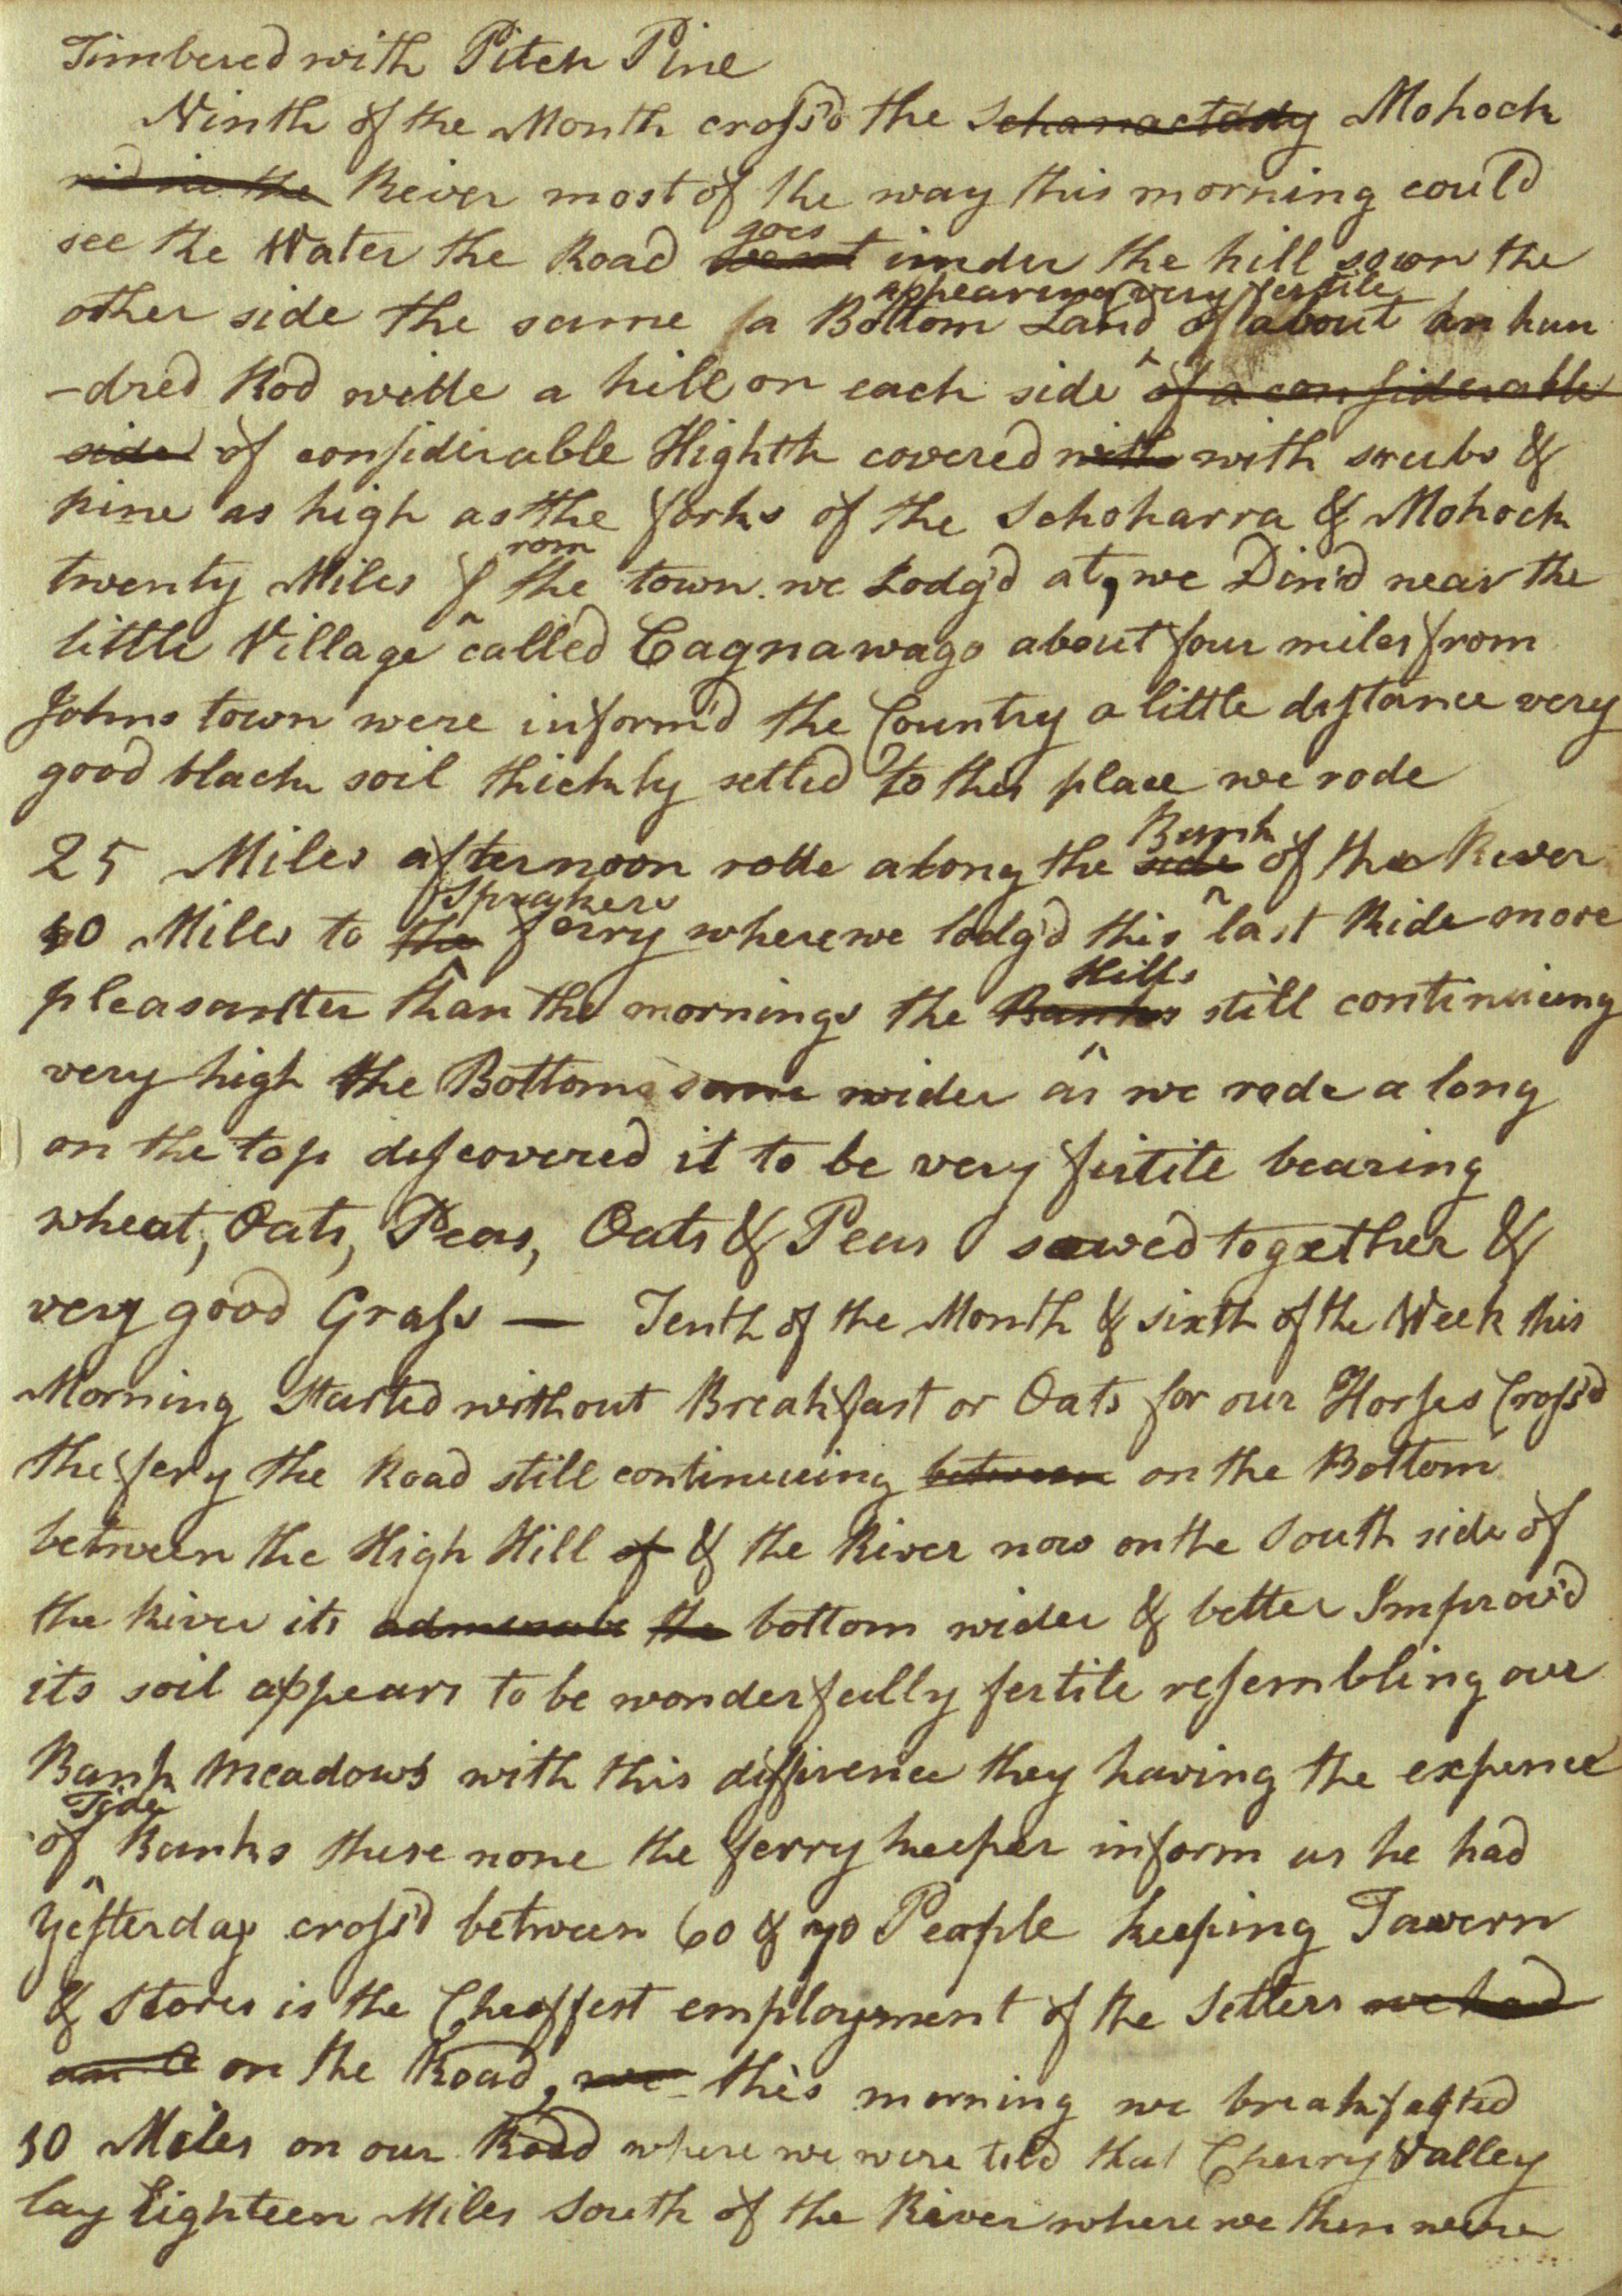 Timbered with Pitch Pine
Ninth of the Month cross'd the Schanactady Mohock
rid in the River most of the way this morning could
see the Water the Road went goes under the hill down the
other side the same (a Bottom Land appearing very fertile of about an hun
-dred Rod wide a hill on each side of a considerable
side of considerable Highth covered with with srubs &
pine as high as the forks of the Schoharra & Mohock
twenty Miles from the town. we Lodg'd at, we Din'd near the
little Village called Cagnawago about four miles from
Johns town were inform'd the Country a little distance very
good black soil thickly setled to this place we rode
25 Miles afternoon rode along the side Bank of the River
10 Miles to the Sprakers ferry where we lodg'd this last Ride more
pleasanter than the mornings the Banks Hills still continuing
very high the Bottoms some wider as we rode a long
on the top discovered it to be very fertile bearing
wheat, Oats, Peas, Oats & Peas sowed together &
very good Grass — Tenth of the Month & sixth of the Week this
Morning Started without Breakfast or Oats for our Horses Cross'd
the fery the Road still continuing between on the Bottom
between the High Hill of & the River now on the South side of
the River its the bottom wider & better Improv'd
its soil appears to be wonderfully fertile resembling our
Bank Meadows with this diffirence they having the expence
of Tide Banks these none the ferry keeper inform us he had
yesterday cross'd between 60 & 70 People keeping Tavern
& Stores is the Cheoffest employment of the Setlers we had
on the Road, we this morning we breakfasted
10 Miles on our Road where we were told that Cherry Valley
lay Eighteen Miles South of the River where we then were